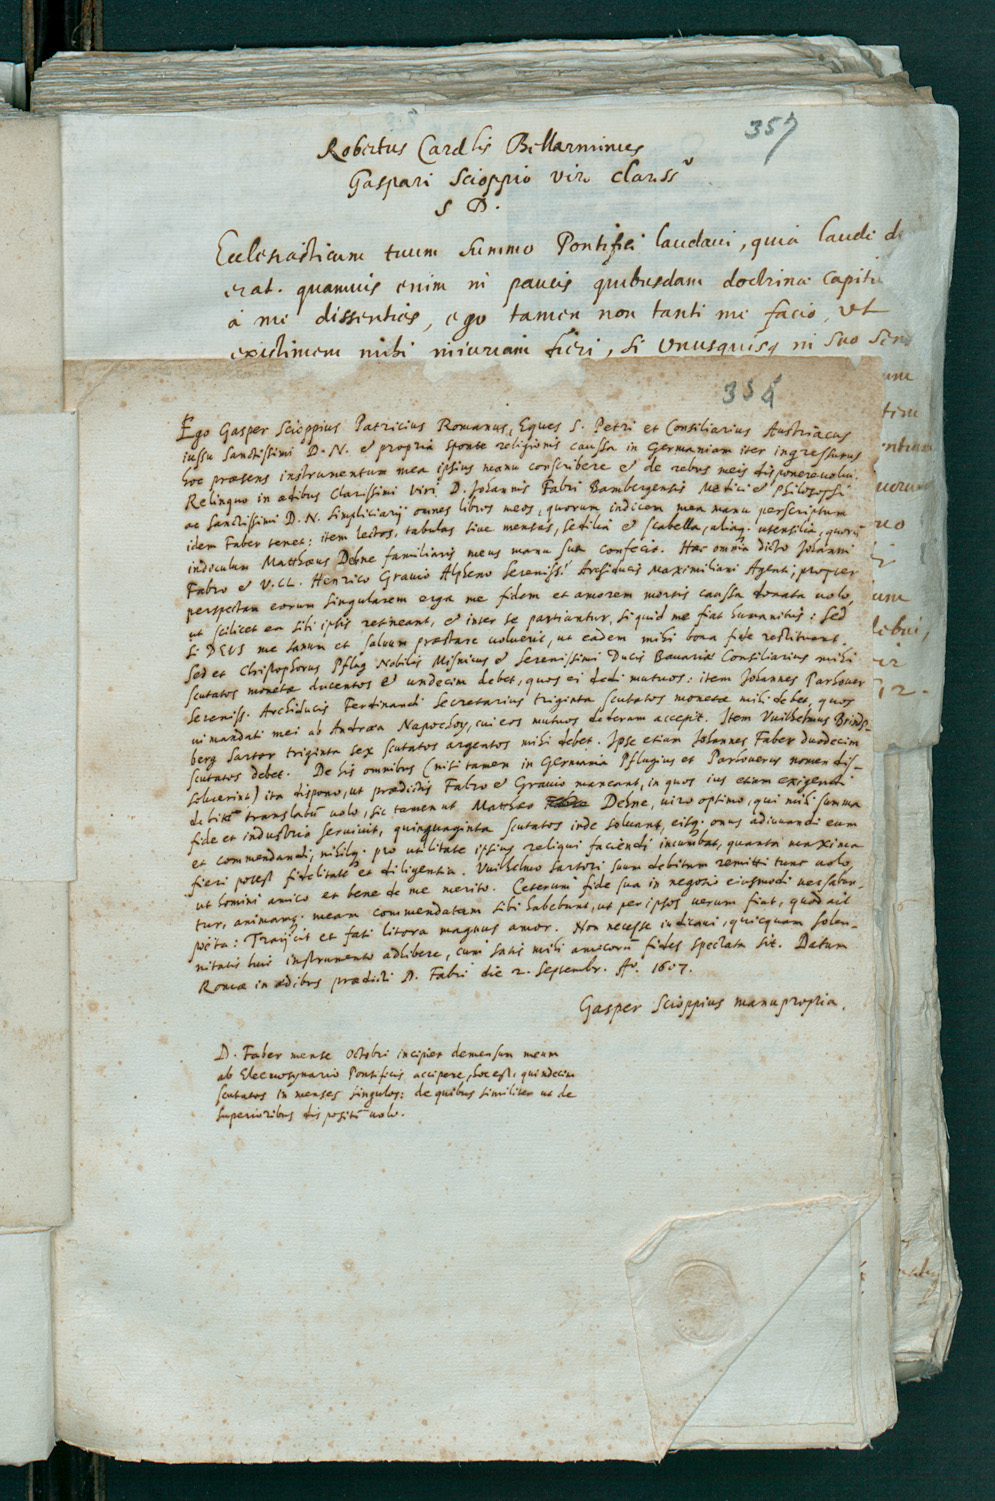 357
Robertus Cardlis Bellarminus
Gaspari Scioppio viro clariss°
S D.
Ecclesiasticum tuum summo Pontifici laudavi, quia laude di
erat. quamvis enim in paucis quibusdam doctrinæ capiti
a me dissenties, ego tamen non tanti me facio, ut
existimem mihi iniuriam fieri, si unusquisq in suo sens
354
Ego Gasper Scioppius Patricius Romanus, Eques S. Petri et Consiliarius Austriacus
iussu Sanctissimi D. N. & propria sponte religionis caussa in Germaniam iter ingressurus
hoc præsens instrumentum mea ipsius manu conscribere & de rebus meis disponere volui.
Relinquo in ædibus Clarissimi Viri D. Johannis Fabri Bambergensis Medici & Philosophi
ac Sanctissimi D. N. Simpliciarij omnes libros meos, quorum indicem mea manu perscriptum
idem Faber tenet: item lectos, tabulas sive mensas, sedilia & scabella, aliaq. utensilia, quorū
indiculum Matthæus Dehne familiaris meus manu sua confecit. Hæc omnia dicto Johanni
Fabro & V. CL. Henrico Gravio Alpheno Serenissi Archiducis Maximiliani Agenti, propter
perspectam eorum singularem erga me fidem et amorem mortis caussa donata volo,
ut scilicet ea sibi ipsis retineant, & inter se partiantur, si quid me fiat humanitus: Sed
si DEUS me sanum et salvum præstare voluerit, ut eadem mihi bona fide restituant.
Sed et Christophorus Pflug Nobilis Misnicus & Serenissimi Ducis Bavariæ Consiliarius mihi
scutatos monetæ ducentos & undecim debet, quos ei dedi mutuos: item Johannes Parhover
Sereniss. Archiducis Ferdinandi Secretarius triginta scutatos monetæ mihi debet, quos
vi mandati mei ab Andræa Napochoy, cui eos mutuos dederam accepit. Item Vuilhelmus Brinds-
berg Sartor triginta sex scutatos argentos mihi debet. Ipse etiam Johannes Faber duodecim
scutatos debet. De his omnibus (nisi tamen in Germania Pflugius et Parhoverus nomen dis-
solverint) ita dispono, ut prædictis Fabro & Gravio maneant, in quos ius etiam exigendi
debitū translatū volo, sic tamen ut Matthæo Dehne, viro optimo, qui mihi summa
fide et industria servivit, quinquaginta scutatos inde solvant, eisq. onus adiuvandi eum
et commendandi, nihilq. pro utilitate ipsius reliqui faciendi incumbat, quanta maxima
fieri potest fidelitate et diligentia. Vuilhelmo Sartori suum debitum remitti tunc volo,
ut homini amico et bene de me merito. Ceterum fide sua in negotio eiusmodi versabun-
tur, animamq. meam commendatam sibi habebunt, ut per ipsos verum fiat, quod ait
poëta: Traijcit et fati litora magnus amor. Non necesse iudicavi, quicquam solen-
nitatis huic instrumento adhibere, cum satis mihi amicorū fides spectata sit. Datum
Romæ in ædibus prædicti D. Fabri die 2. Septembr. A°. 1607.
Gasper Scioppius manu propria.
D. Faber mense Octobri incipiet demensum meum
ab Eleemosynario Pontificis accipere, hoc est, quindecim
scutatos in menses singulos: de quibus similiter ut de
superioribus dispositū volo.